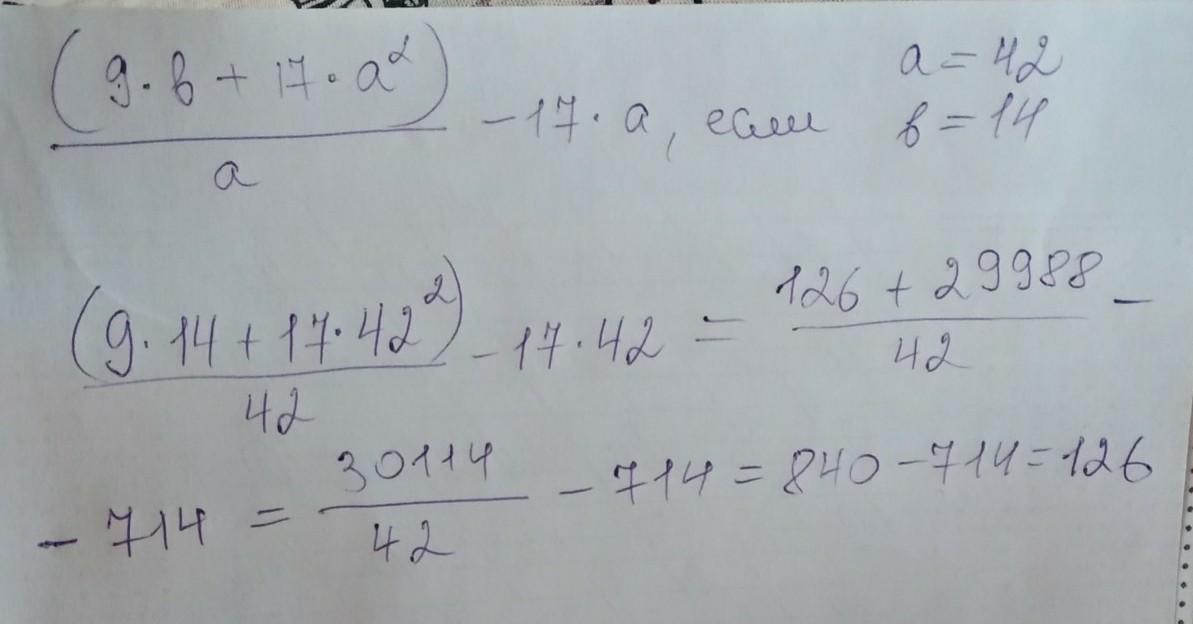 (9·b + 17·a²)
a = 42
— - 17·a, если
b = 14
a
(9·14 + 17·42²)/42 - 17·42 = (126 + 29988)/42 -
- 714 = 30114/42 - 714 = 840 - 714 = 126